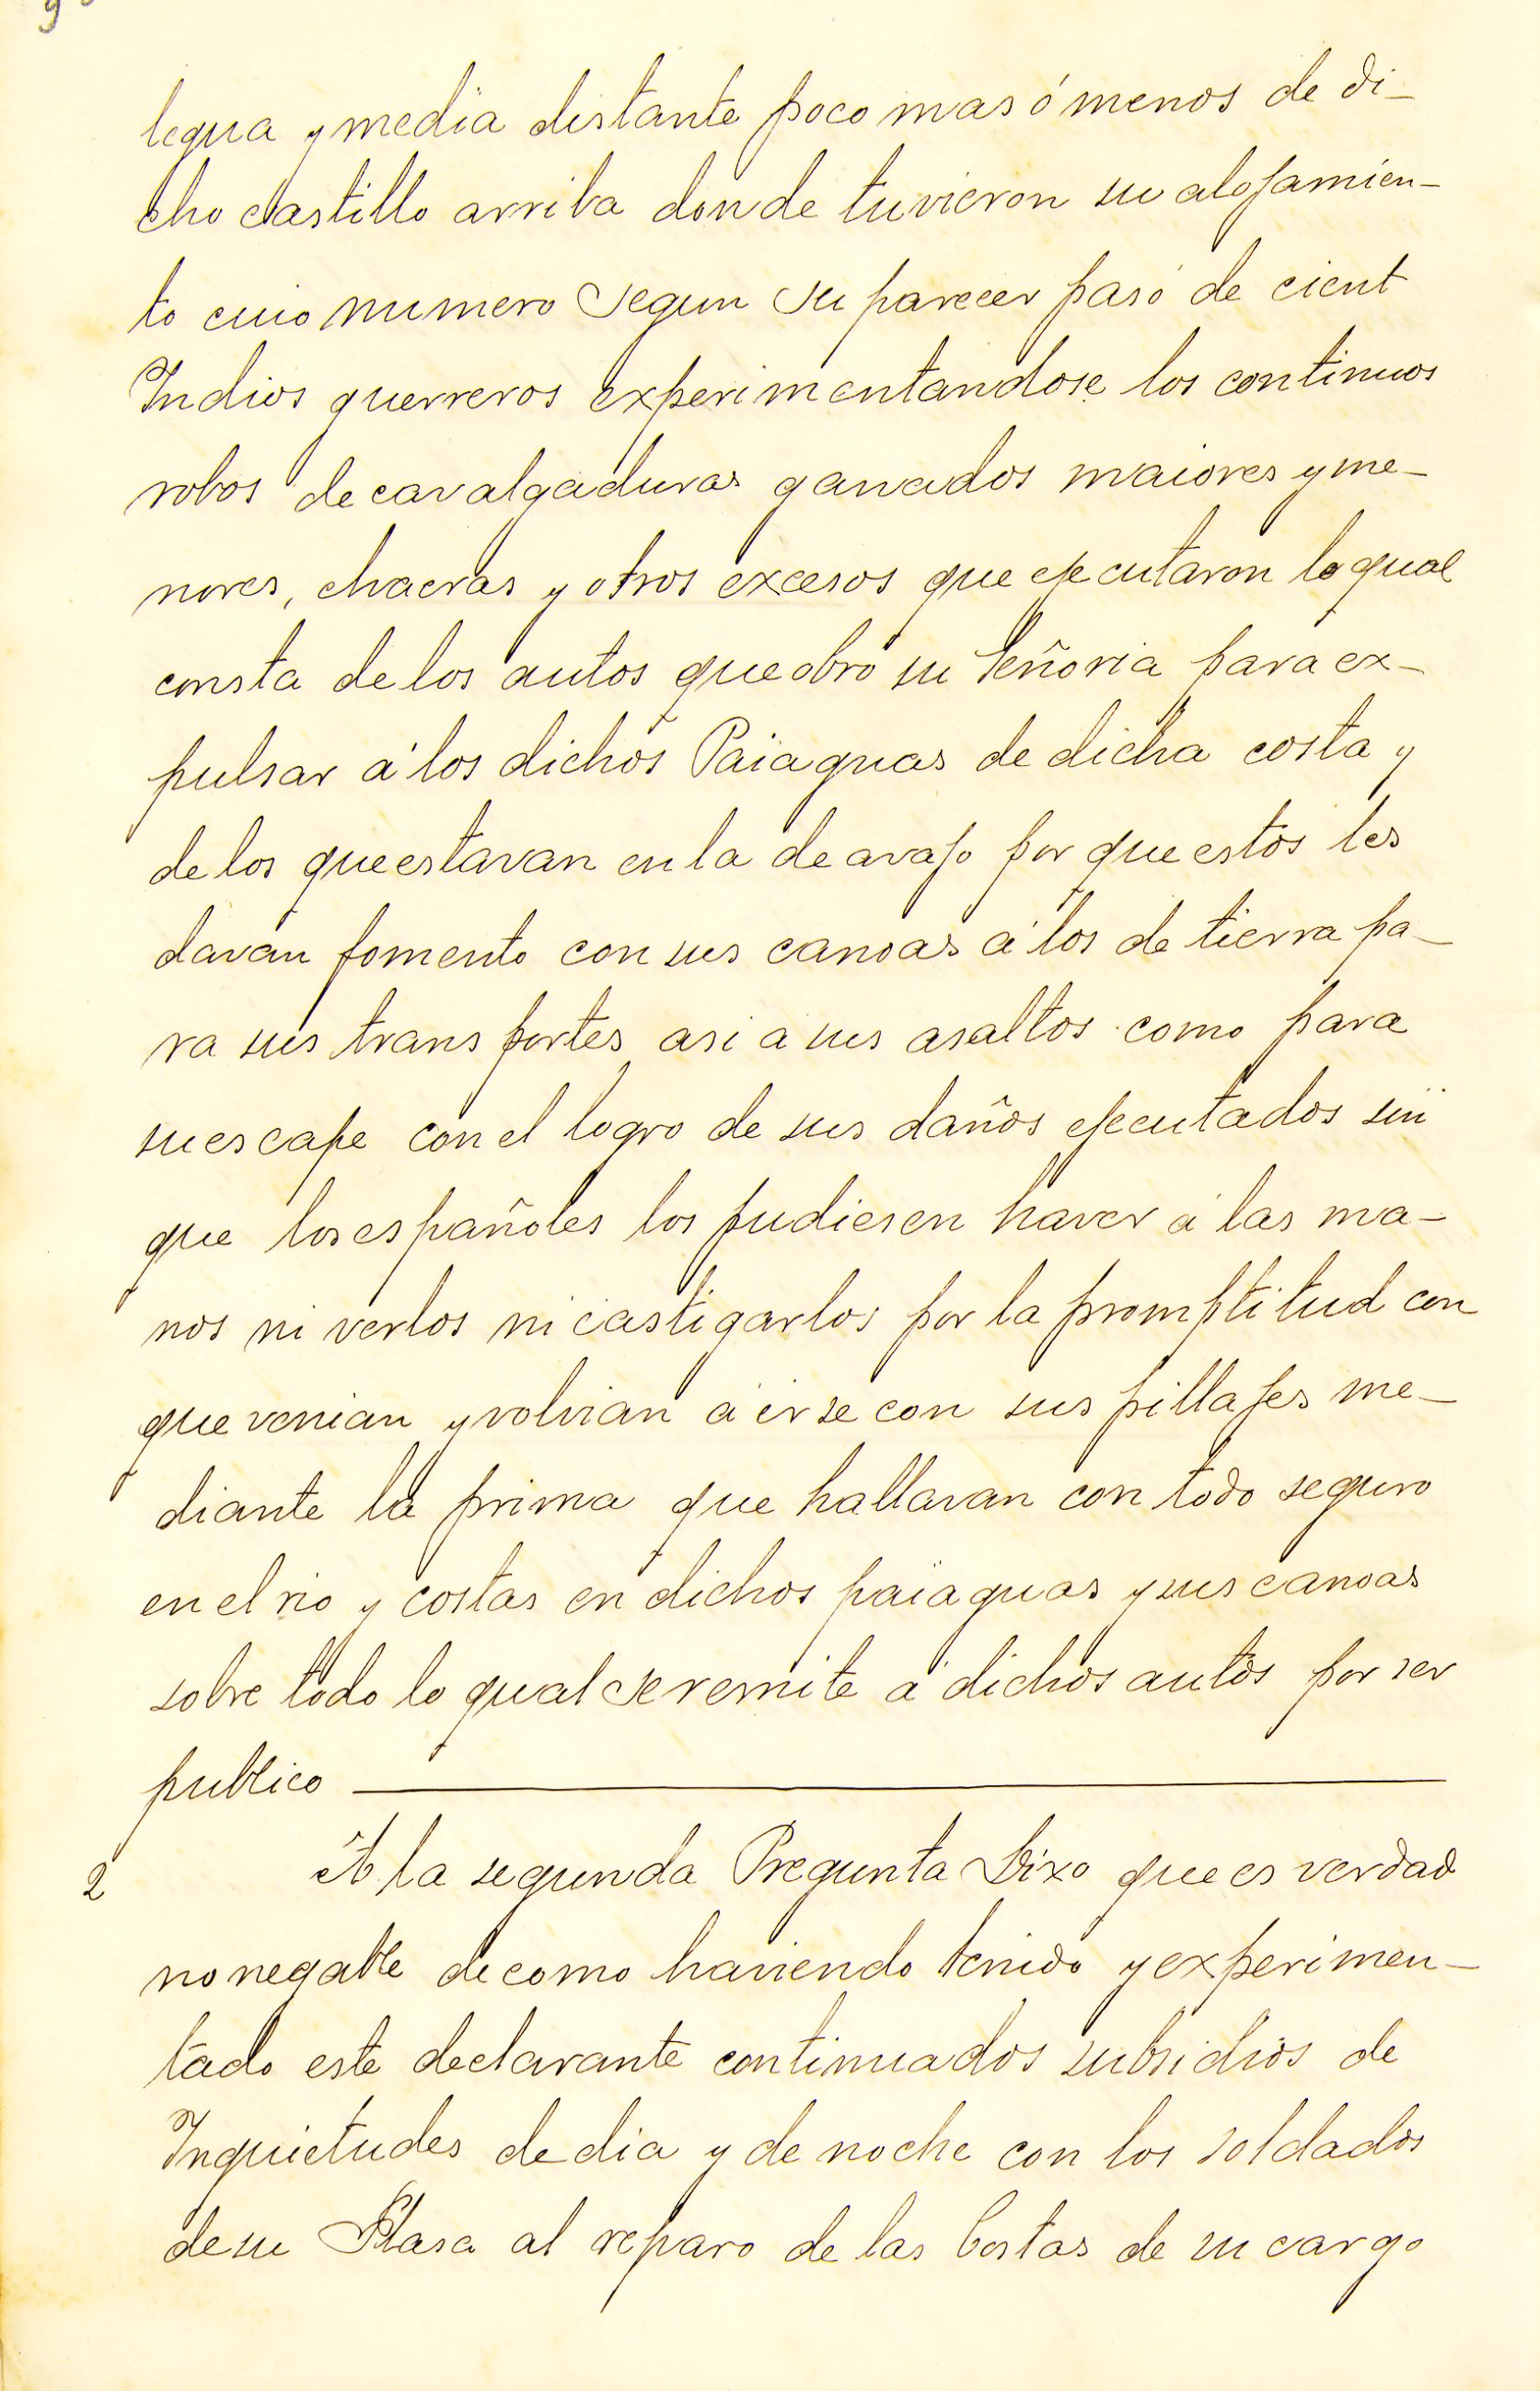 legua y media distante poco mas ó menos de di-
cho castillo arriba donde tuvieron su alojamien-
to cuio numero segun su parecer pasó de cient
Indios guerreros experimentandose los continuos
robos de cavalgaduras ganados maiores y me-
nores, chacras y otros excesos que ejecutaron lo qual
consta de los autos que obró su Señoria para ex-
pulsar á los dichos Paiaguas de dicha costa y
de los que estavan en la de avajo por que estos les
davan fomento con sus canoas á los de tierra pa-
ra sus transportes asi a sus asaltos como para
su escape con el logro de sus daños ejecutados sin
que los españoles los pudiesen haver á las ma-
nos ni verlos ni castigarlos por la promptitud con
que venian y volvian á irse con sus pillajes me-
diante la prima que hallavan con todo seguro
en el rio y costas en dichos paiaguas y sus canoas
sobre todo lo qual se remite á dichos autos por ser
publico
2 A la segunda Pregunta Dixo que es verdad
no negable de como haviendo tenido y experimen-
tado este declarante continuados subsidios de
Inquietudes de dia y de noche con los soldados
de su Plasa al reparo de las Costas de su cargo